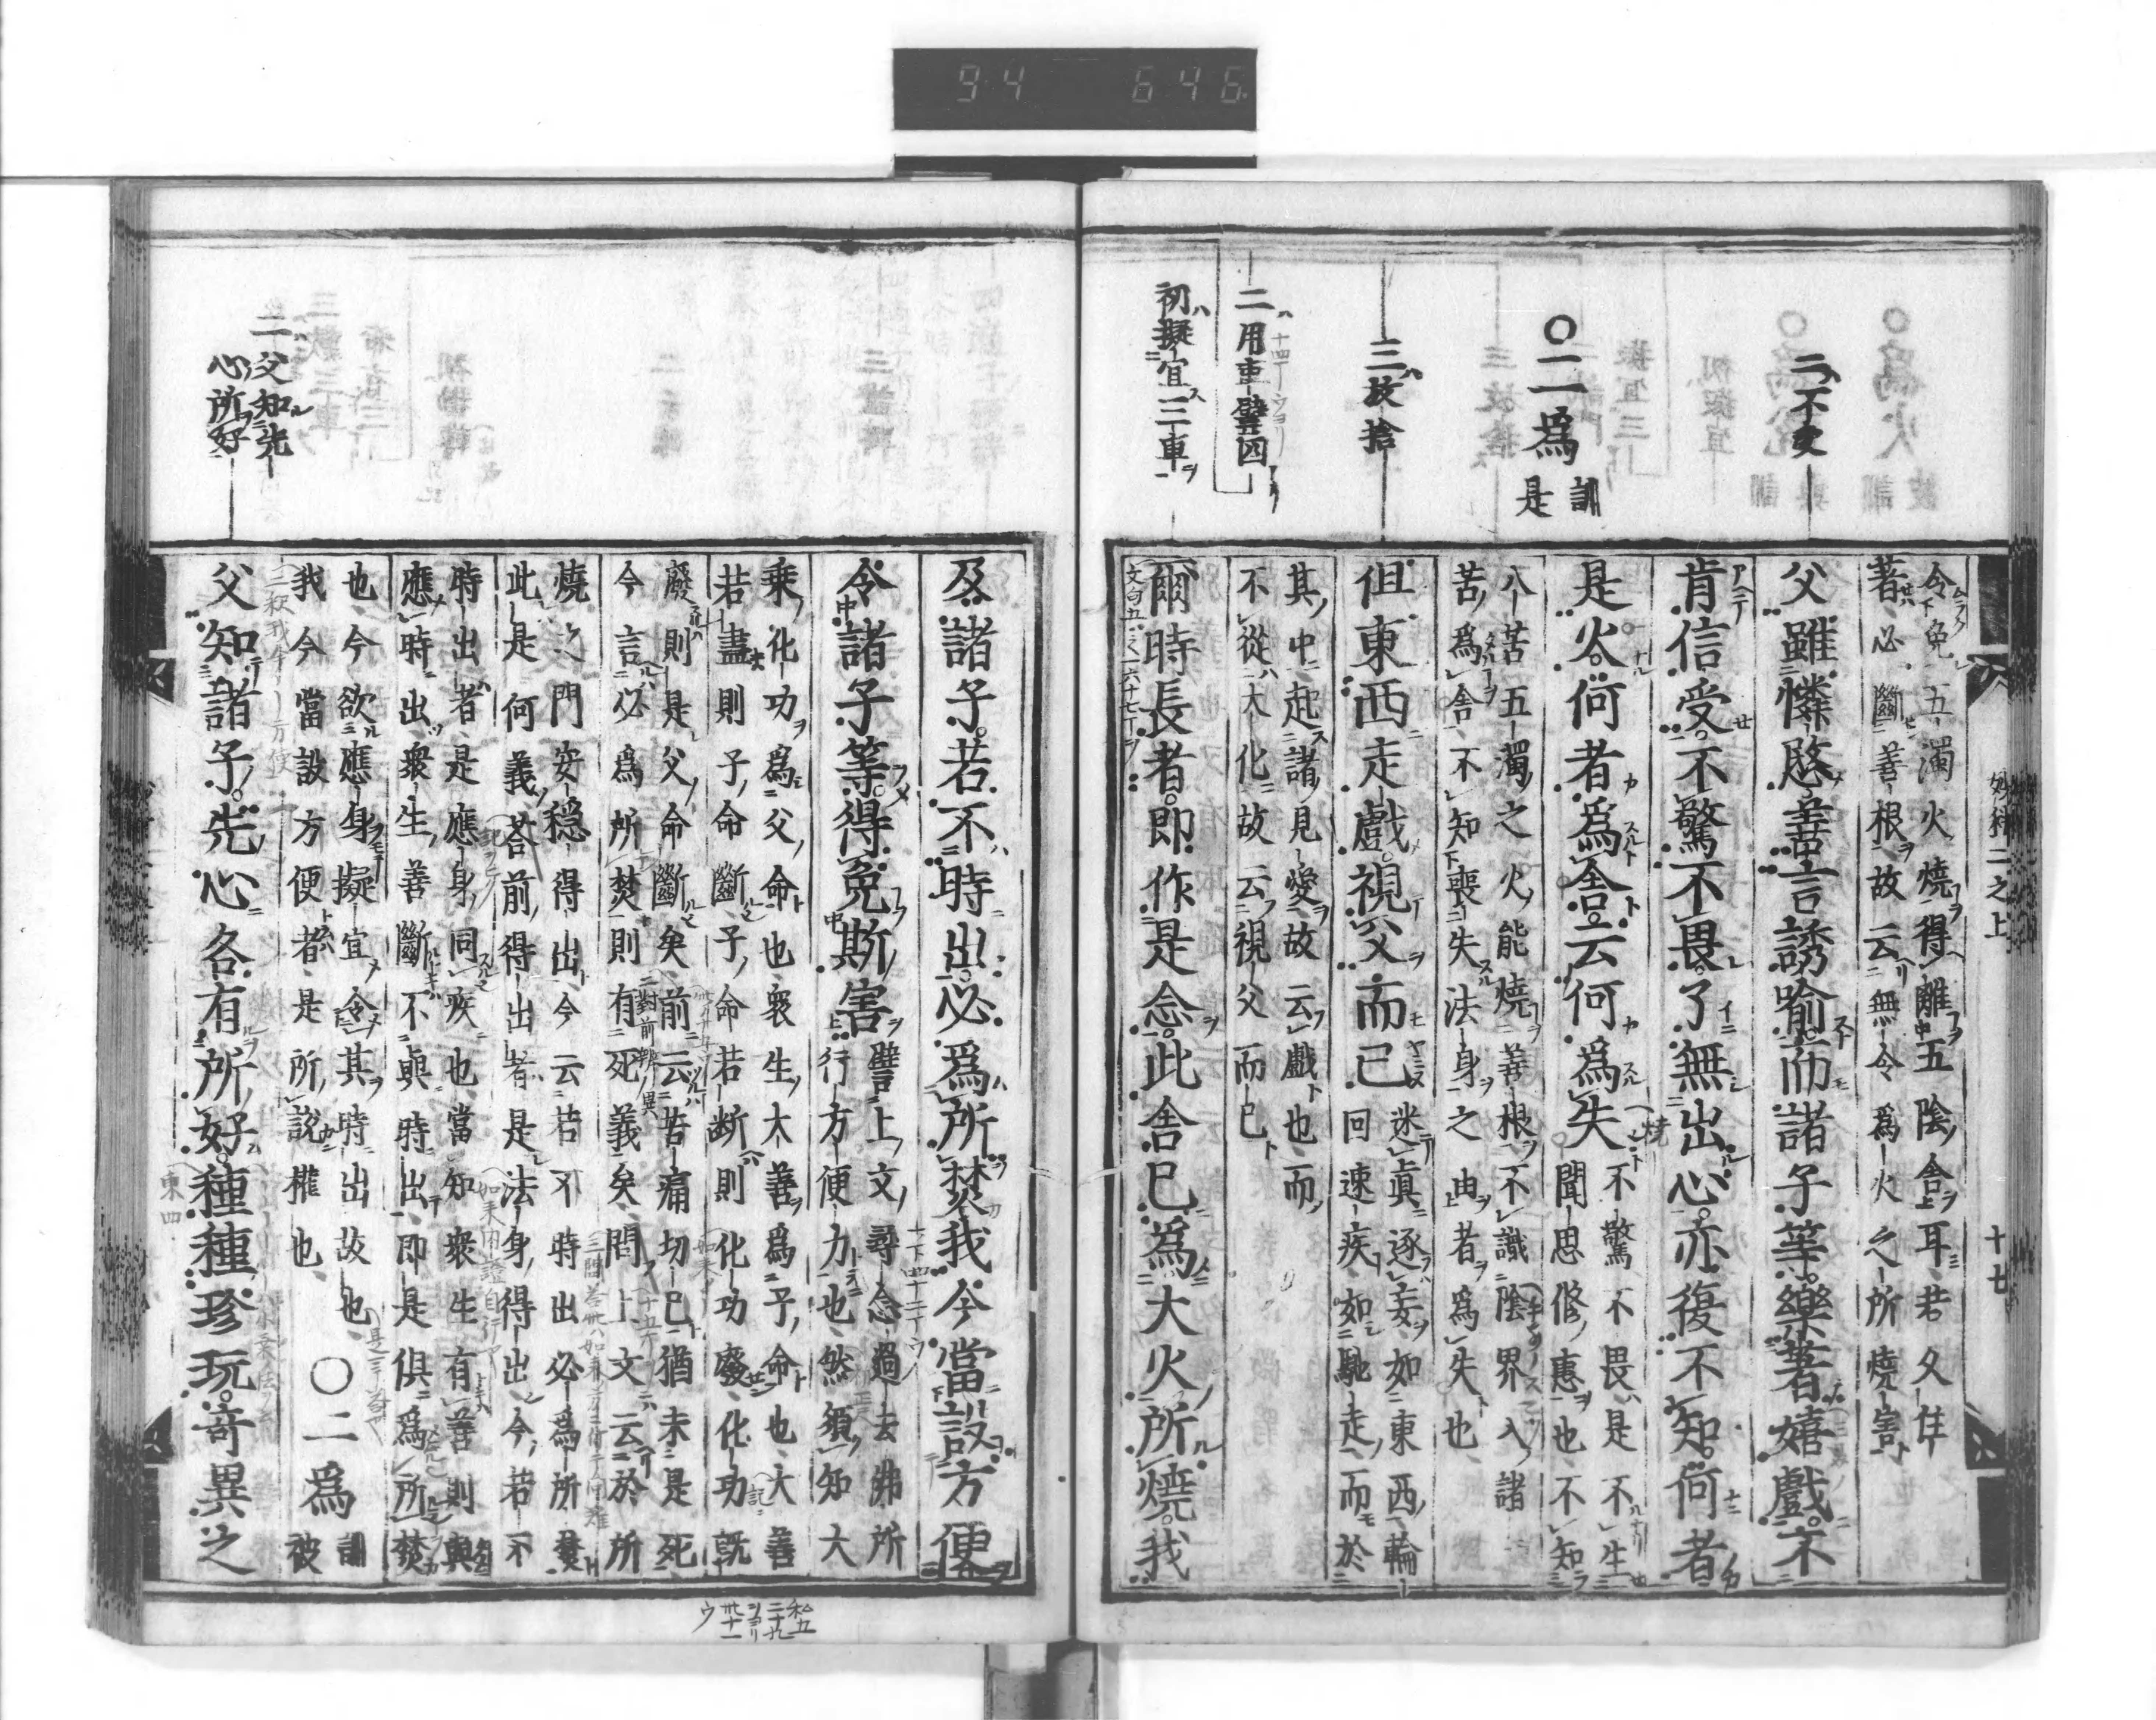 94 646
二不受
〇二爲
訓
是
三放捨
二用車譬四
初擬宜三車
妙科二之上
十七
令免五濁火燒得離五陰舎耳若久住
著必斷善根故云無令爲火之所燒害
父雖憐愍善言誘喩而諸子等樂著嬉戲不
肯信受不驚不畏了無出心亦復不知何者
是火何者爲舍云何爲失
不驚不畏是不生
聞思修惠也不知
八苦五濁之火能燒善根不識陰界入諸
苦爲舍不知喪失法身之由者爲失也
但東西走戲視父而已
迷眞逐妄如東西輪
回速疾如馳走而於
其中起諸見愛故云戲也而
不從大化故云視父而已
爾時長者即作是念此舎已爲大火所燒我
及諸子若不時出必爲所焚我今當設方便
令諸子等得免斯害
譬上文尋念過去佛所
行方便力也然須知大
乘化功爲父命也衆生大善爲子命也大善
若盡則子命斷子命若断則化功廢化功既
廢則是父命斷矣前云苦痛切已猶未是死
今言必爲所焚則有死義矣問上文云於所
燒之門安穩得出今云若不時出必爲所焚
此是何義荅前得出者是法身得出今若不
時出者是應身同疾也當知衆生有善則與
應時出衆生善斷不與時出即是俱爲所焚
也今欲應身擬宜令其時出故也
我今當設方便者是所說權也
〇二爲
訓
被
二父知先
心所好
父知諸子先心各有所好種種珍玩奇異之